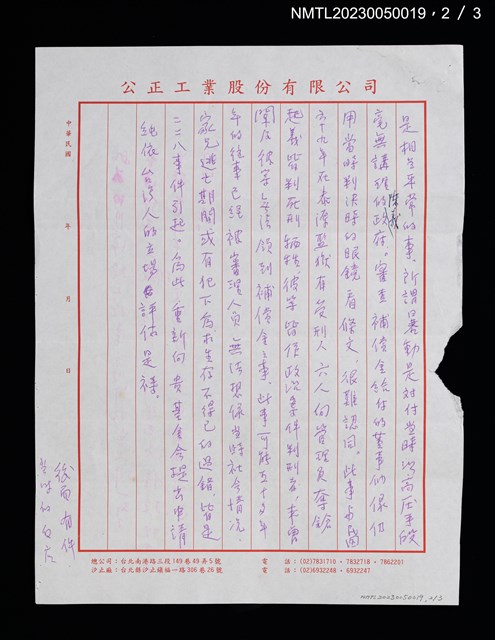 NMTL20230050019，2 / 3
公正工業股份有限公司
中華民國　年　月　日
是相當平常的事。所謂暴動是对付当時以高压手段
毫無講理的政府。審查補償金給付的董事们保仍
陳義
用當時判決時的眼鏡看條文，很難認同。此事与國
六十九年在泰源監獄有受刑人六人向管理員奪鎗
起義皆判死刑牺牲，彼等皆依政治案件判刑者，未曾
聞及彼等無法領到補償金之事。此事可能五十多年
年的往事已經被審理人員無法想像当時社会情況。
家兄逃亡期間或有犯下為求生存不得已的過錯，皆是
二二八事件引起。為此，重新向 貴基金会提出申請
純依台湾人的立場評估是禱。
總公司：台北南港路三段149巷49弄5號　電　話：(02)7831710・7832718・7862201
汐止廠：台北縣汐止鎮福一路306巷26號　電　話：(02)6932248・6932247
NMTL20230050019 2/3